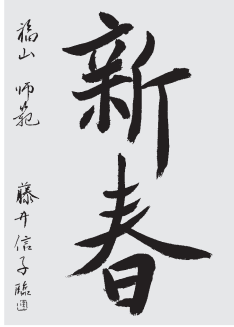 新春
福山 師範 藤井信子臨